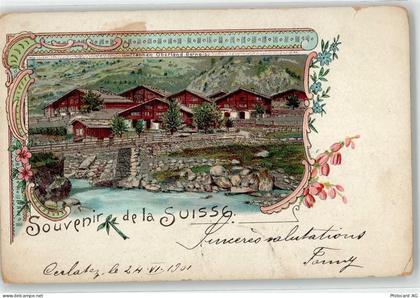 Souvenir de la SUISSE.
Sincères salutations
Fanny
Cerlatez, le 24 VI. 1901
Postcard AG